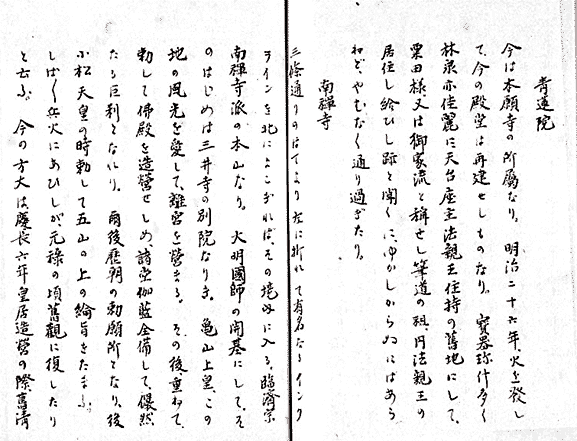 青蓮院
今は本願寺の所属なり。明治二十六年火を発し
て、今の殿堂は再建せしものなり。寳器珍什多く
林泉亦佳麗に天台座主法親王住持の舊地にして、
粟田様又は御家流と稱せし筆道の祖、円法親王の
居住し給ひし跡と聞くにゆかしからぬにはあら
ねど、やむなく通り過ぎたり。
南禪寺
三條通りのはてより左に折れて有名なるインク
ラインを北によこぎれば、その境内に入る。臨濟宗
南禪寺派の本山なり。大明國師の開基にして、そ
のはじめは三井寺の別院なりき。亀山上皇、この
地の風光を愛して、離宮を營まる。その後重ねて
勅して佛殿を造營せしめ、諸堂伽藍全備して、儼然
たる巨刹となり。爾後歴朝の勅願所となり、後
小松天皇の時勅して五山の上の綸旨をたまふ。
しばしば兵火にあひしが、元禄の頃舊觀に復したり
と云ふ。今の方丈は慶長六年皇居造營の際舊清